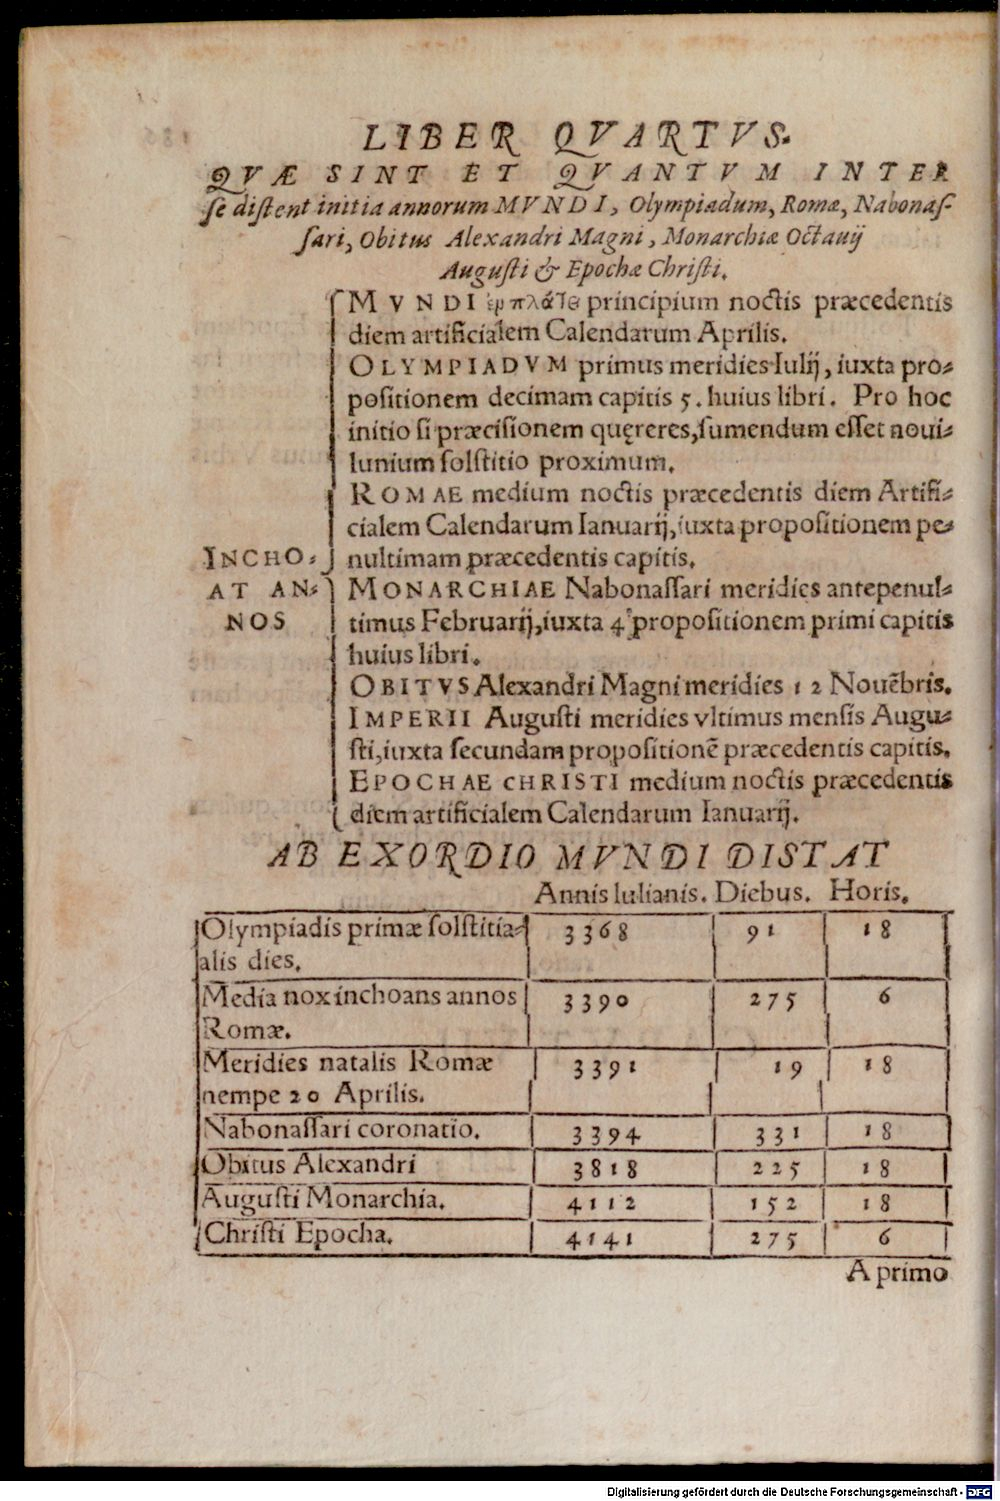 LIBER QVARTVS.
QVÆ SINT ET QVANTVM INTER
ſe diſtent initia annorum MVNDI, Olympiadum, Romæ, Nabonaſ-
ſari, Obitus Alexandri Magni, Monarchiæ Octauij
Auguſti & Epochæ Chriſti.
MVNDI principium noctis præcedentis
diem artificialem Calendarum Aprilis.
OLYMPIADVM primus meridies Iulij, iuxta pro-
poſitionem decimam capitis 5. huius libri. Pro hoc
initio ſi præciſionem quęreres, ſumendum eſſet noui-
lunium ſolſtitio proximum.
ROMAE medium noctis præcedentis diem Artifi-
cialem Calendarum Ianuarij, iuxta propoſitionem pe-
INCHO- nultimam præcedentis capitis.
AT AN- MONARCHIAE Nabonaſſari meridies antepenul-
NOS timus Februarij, iuxta 4 propoſitionem primi capitis
huius libri.
OBITVS Alexandri Magni meridies 12 Nouẽbris.
IMPERII Auguſti meridies vltimus menſis Augu-
ſti, iuxta ſecundam propoſitionẽ præcedentis capitis.
EPOCHAE CHRISTI medium noctis præcedentis
diem artificialem Calendarum Ianuarij.
AB EXORDIO MVNDI DISTAT
Annis Iulianis. Diebus. Horis.
Olympiadis primæ ſolſtitia- 3368 91 18
alis dies.
Media nox inchoans annos 3390 275 6
Romæ.
Meridies natalis Romæ 3391 19 18
nempe 20 Aprilis.
Nabonaſſari coronatio. 3394 331 18
Obitus Alexandri 3818 225 18
Auguſti Monarchia. 4112 152 18
Chriſti Epocha. 4141 275 6
A primo
Digitalisierung gefördert durch die Deutsche Forschungsgemeinschaft - DFG